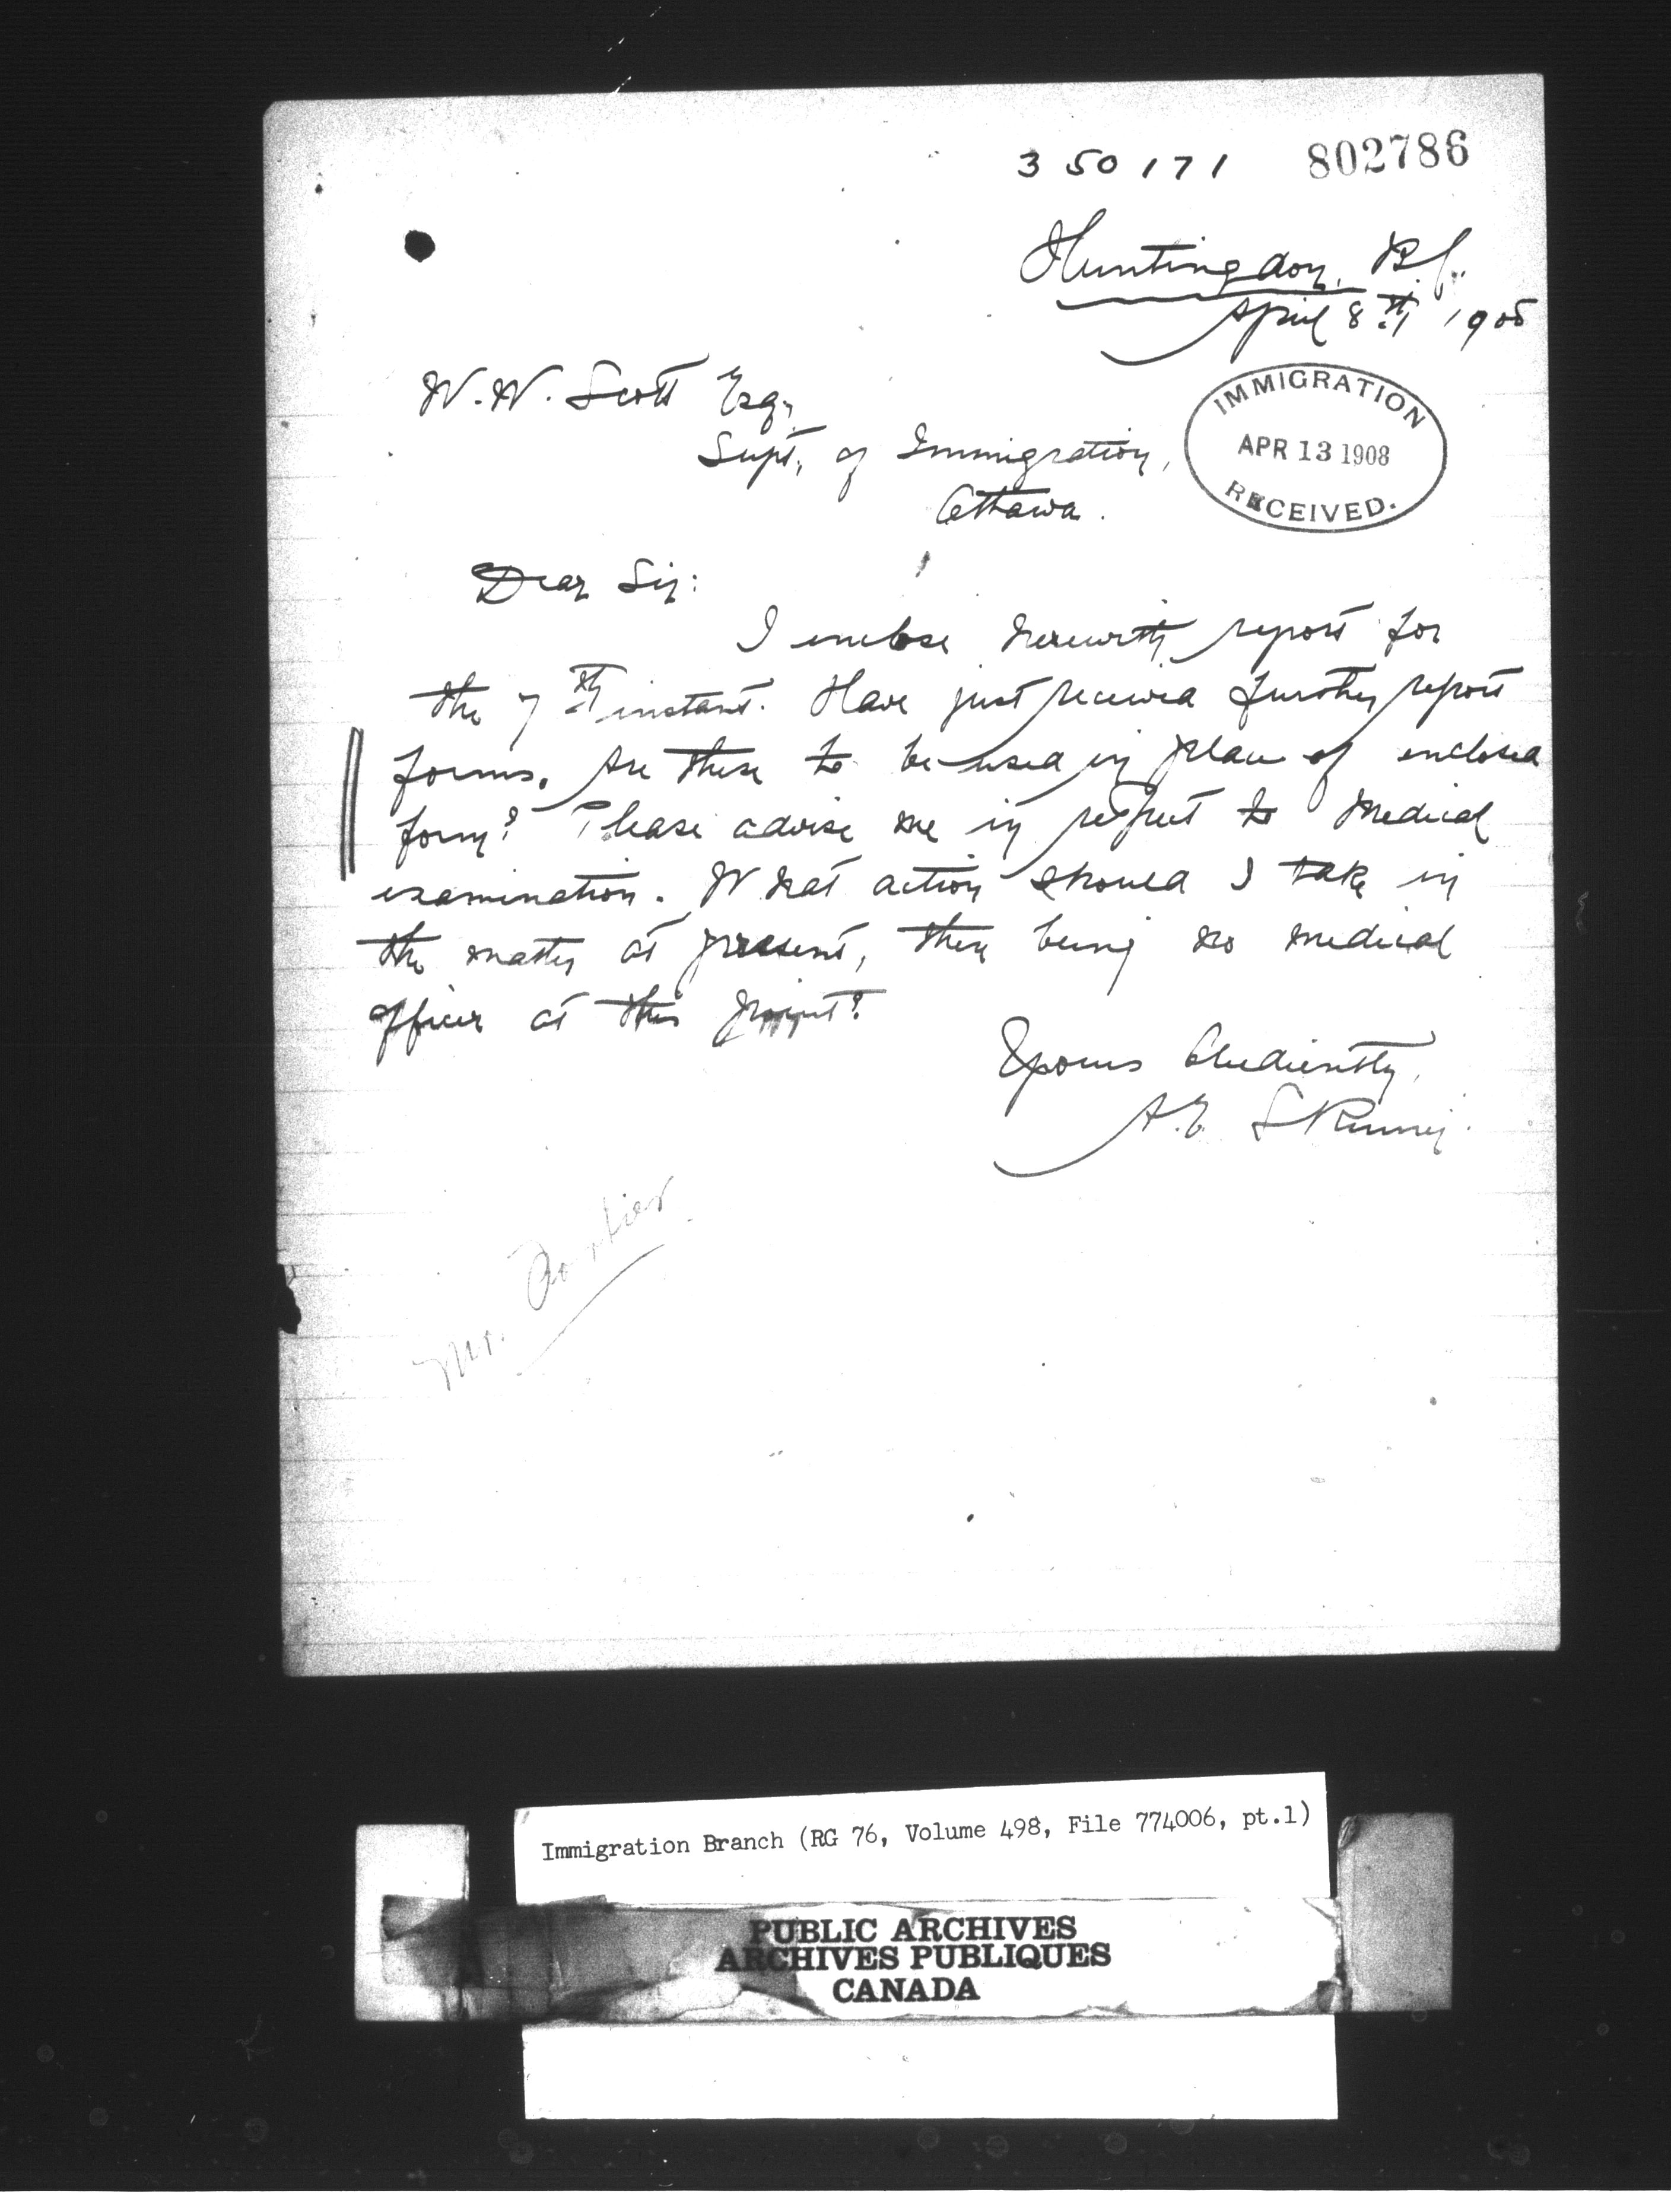 350171 802786
Huntingdon, B.C.
April 8th 1908
W. W. Scott Esq.,
Supt. of Immigration,
Ottawa.
IMMIGRATION
APR 13 1908
RECEIVED.
Dear Sir:
I enclose herewith report for
the 7th instant. Have just received further report
forms. Are these to be used in place of enclosed
form? Please advise me in respect to medical
examination. What action should I take in
the matter at present, there being no medical
officer at this point?
Yours Obediently,
A.E. Skinner.
Mr.
Immigration Branch (RG 76, Volume 498, File 774006, pt.1)
PUBLIC ARCHIVES
ARCHIVES PUBLIQUES
CANADA